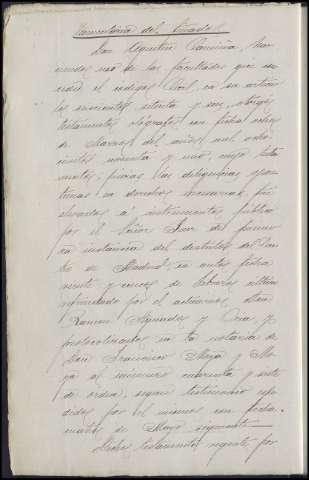 Testamentaria del Finado
Don Agustin Pominia, ha-
ciendo uso de las facultades que con-
cede el código Civil, en su articu-
lo seiscientos setenta y seis, otorgó
testamento ológrafo en fecha
de Marzo del año mil ocho-
cientos noventa y uno, cuyo testa-
mento, previas las diligencias opor-
tunas en derecho necesarias, fué
elevado á instrumento público
por el Señor Juez de prime-
ra instancia del distrito del
de Madrid, en autos fecha
veinte y cinco de Febrero último
refrendado por el actuario, Don
Ramon y Oria y
protocolizado en la notaria de
Don Francisco Moya y Mo-
ya al número cuarenta y siete
de órden, segun testimonio espe-
dido por el mismo en fecha
cuatro de Mayo siguiente
Dicho testamento vigente, por